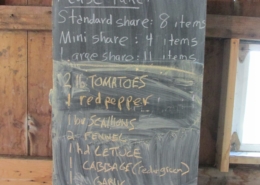 Standard share: 8 items
Mini share: 4 items
Large share: 11 items
TOMATOES
1 red pepper
1 SCALLIONS
2 FENNEL
1 hd LETTUCE
CABBAGE (red or green)
GARLIC